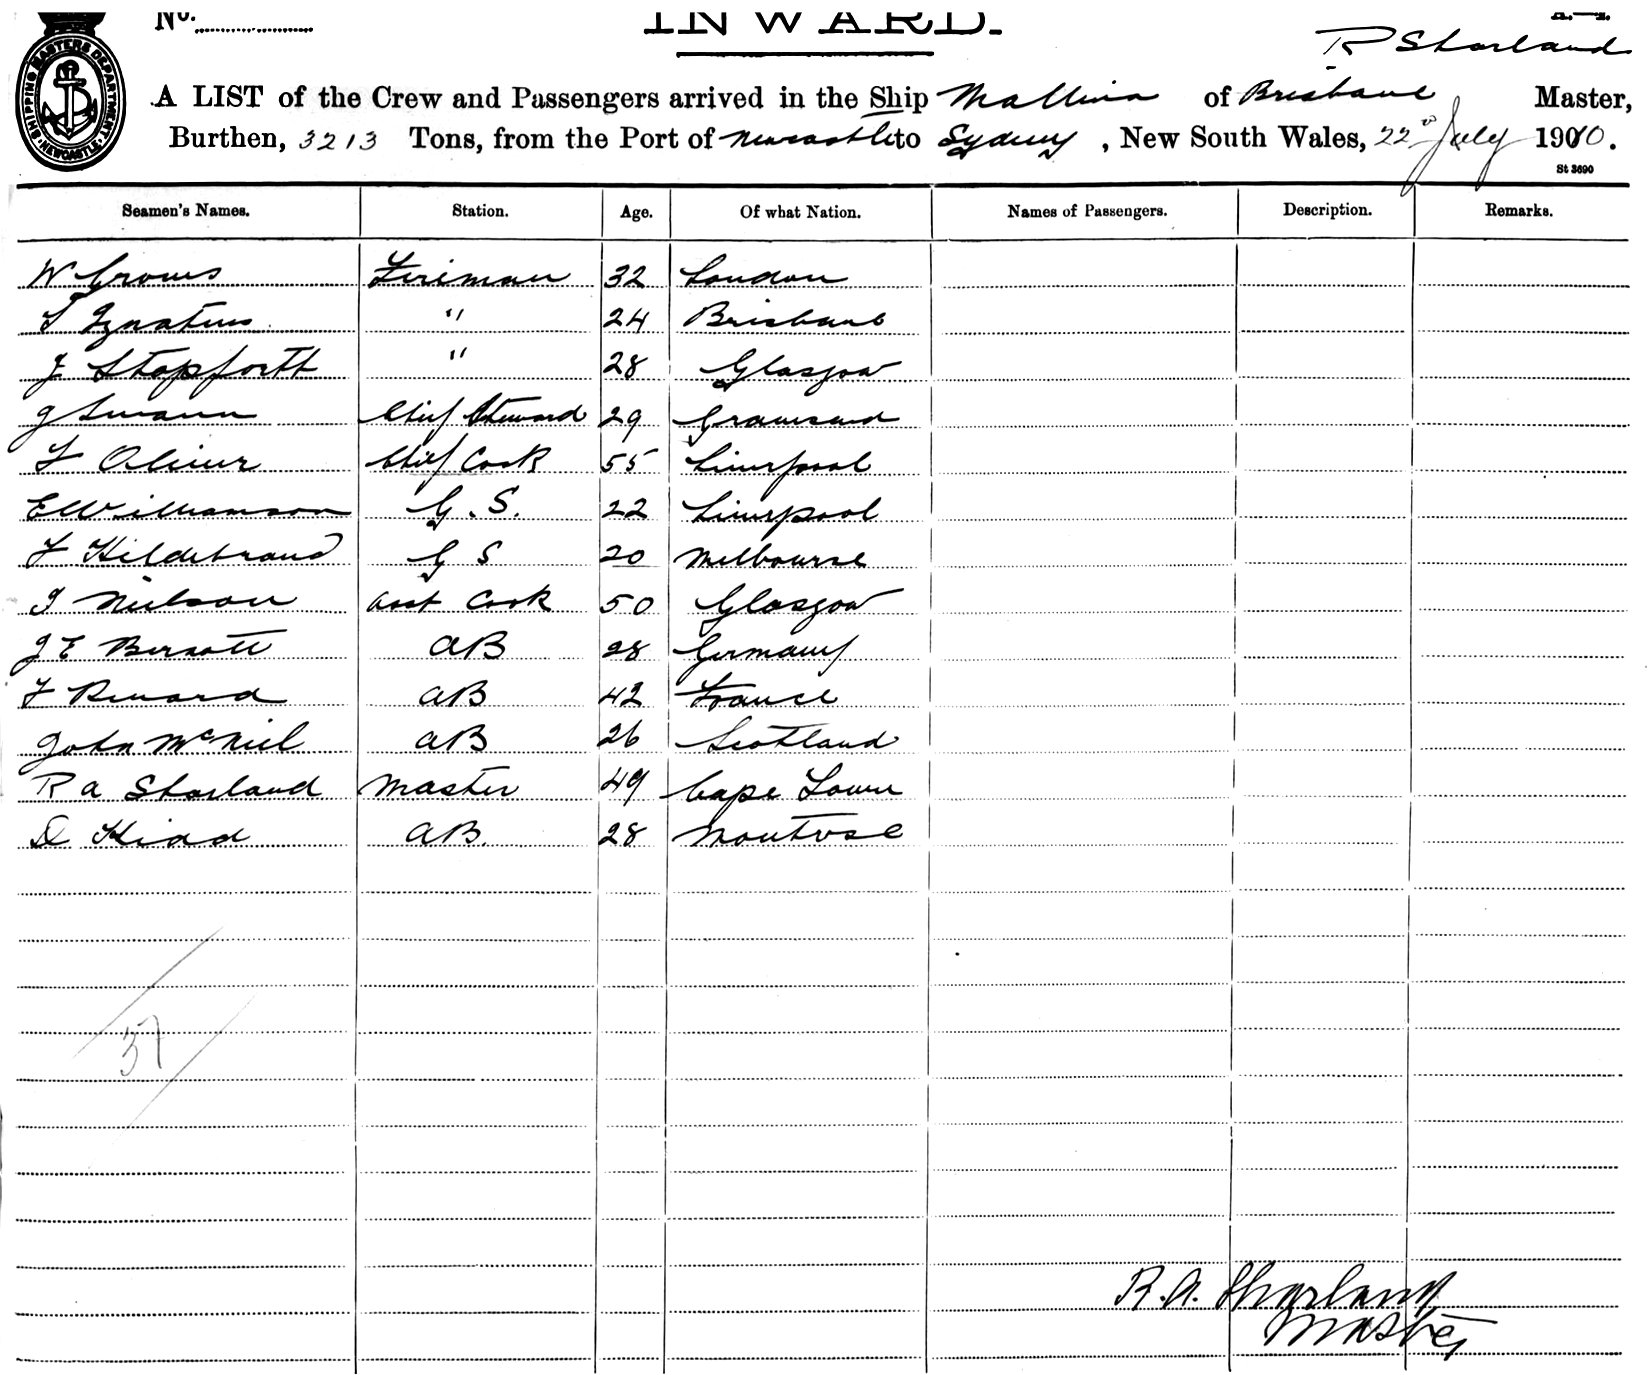 No.
INWARD.
R Sharland
A LIST of the Crew and Passengers arrived in the Ship Mallina of Brisbane Master,
Burthen, 3213 Tons, from the Port of Newcastle to Sydney, New South Wales, 22nd July 1910.
St 3690
SHIPPING MASTERS DEPARTMENT NEWCASTLE
Seamen's Names. Station. Age. Of what Nation. Names of Passengers. Description. Remarks.
W Fireman 32 London
Ignatius " 24 Brisbane
J Stopforth " 28 Glasgow
J Swann Chief Steward 29 Gravesend
F Oliver Chief Cook 55 Liverpool
E Williamson G.S. 22 Liverpool
F Hildebrand G S 20 Melbourne
Neilson Asst Cook 50 Glasgow
J E AB 28 Germany
F Renard AB 42 France
John McNiel AB 26 Scotland
R A Sharland Master 49 Cape Town
D Kidd AB. 28 Montrose
37
R.A. Sharland
Master